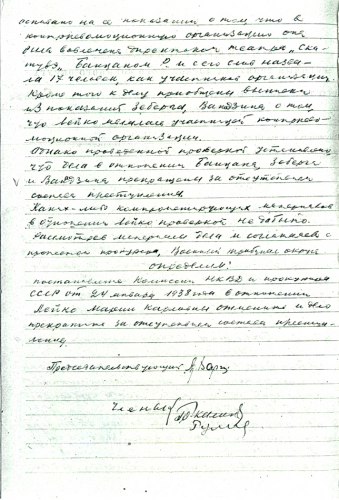 основано на её показании о том что в
контрреволюционную организацию она
была вовлечена директором театра „Ска-
тувэ" Банцаном Р и с его слов назва-
ла 17 человек, как участников организации
Кроме того к делу приобщены выписки
из показаний Зеберга, Вандзина о том,
что Лейко являлась участницей контррево-
люционной организации.
Однако проведенной проверкой установлено
что дела в отношении Банцана, Зеберга
и Вандзина прекращены за отсутствием
состава преступления
Каких-либо компрометирующих материалов
в отношении Лейко проверкой не добыто.
Рассмотрев материалы дела и соглашаясь с
протестом прокурора, Военный трибунал округа
определил:
постановление Комиссии НКВД и прокуратуры
СССР от 24 января 1938 года в отношении
Лейко Марии Карловны отменить и дело
прекратить за отсутствием состава преступ-
ления.
Председательствующий
Члены